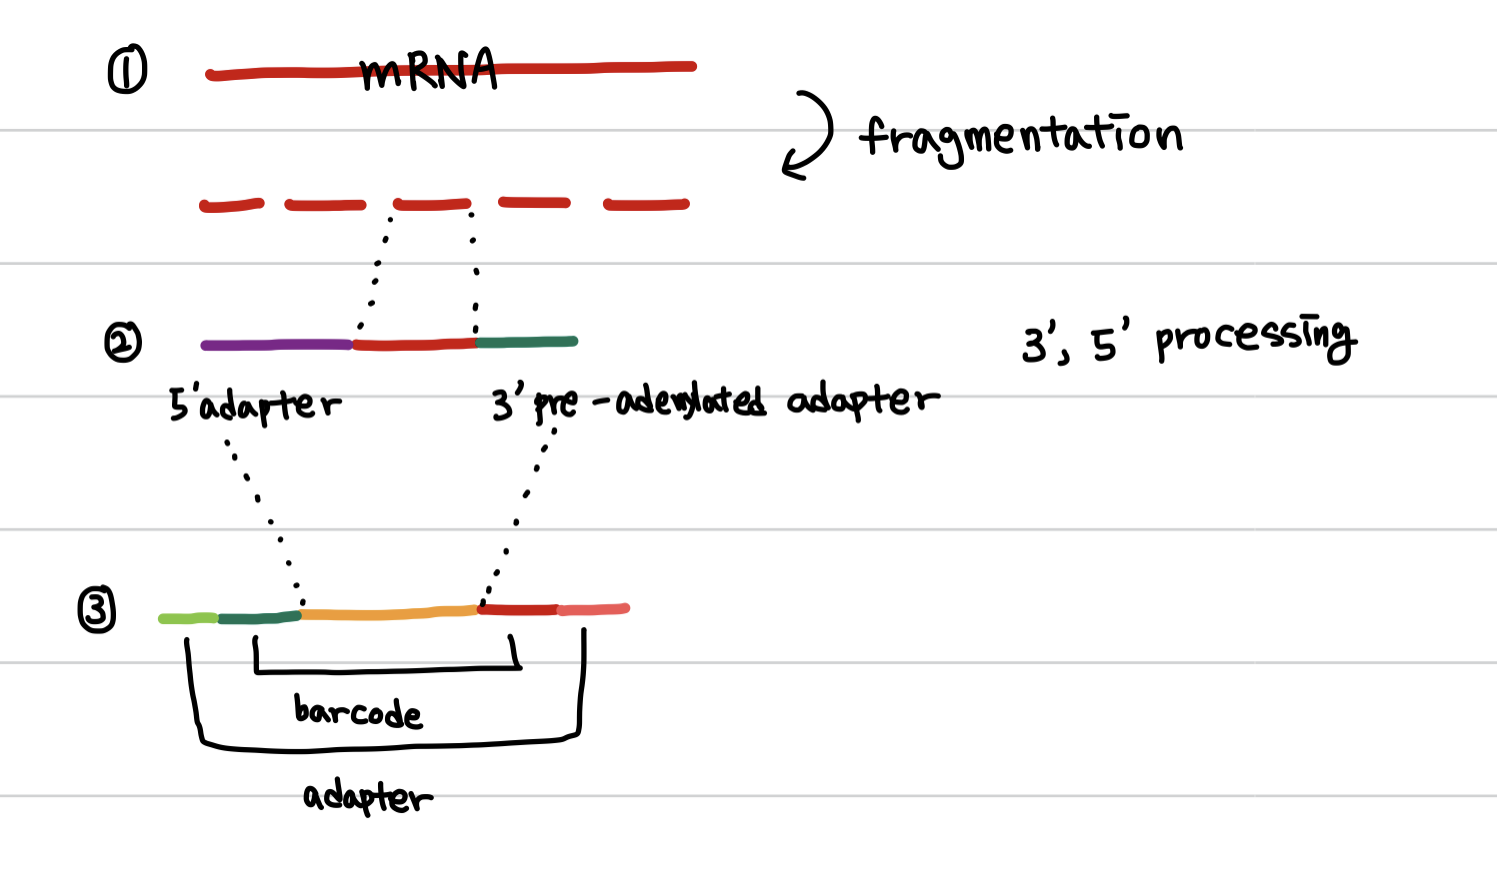 ① mRNA
fragmentation
② 3', 5' processing
5' adapter 3' pre-adenylated adapter
③
barcode
adapter